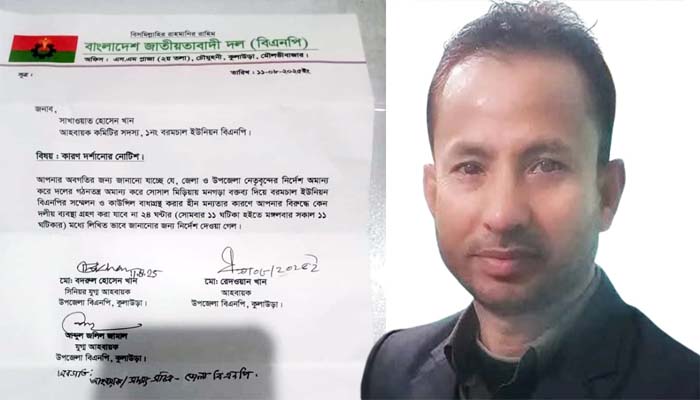 বিসমিল্লাহির রাহমানির রাহিম
বাংলাদেশ জাতীয়তাবাদী দল (বিএনপি)
অফিস : এস.এম প্লাজা (২য় তলা), চৌমুহনী, কুলাউড়া, মৌলভীবাজার।
সূত্র : তারিখ : ১১-০৮-২০২৫ইং
জনাব,
সাখাওয়াত হোসেন খান
আহবায়ক কমিটির সদস্য, ১নং বরমচাল ইউনিয়ন বিএনপি।
বিষয় : কারণ দর্শানোর নোটিশ।
আপনার অবগতির জন্য জানানো যাচ্ছে যে, জেলা ও উপজেলা নেতৃবৃন্দের নির্দেশ অমান্য
করে দলের গঠনতন্ত্র অমান্য করে সোসাল মিড়িয়ায় মনগড়া বক্তব্য দিয়ে বরমচাল ইউনিয়ন
বিএনপির সম্মেলন ও কাউন্সিল বাধাগ্রস্থ করার হীন মন্যতার কারণে আপনার বিরুদ্ধে কেন
দলীয় ব্যবস্থা গ্রহণ করা যাবে না ২৪ ঘন্টার (সোমবার ১১ ঘটিকা হইতে মঙ্গলবার সকাল ১১
ঘটিকার) মধ্যে লিখিত ভাবে জানানোর জন্য নির্দেশ দেওয়া গেল।
মো: বদরুল হোসেন খান মো: রেদওয়ান খান
সিনিয়র যুগ্ম আহবায়ক আহবায়ক
উপজেলা বিএনপি, কুলাউড়া। উপজেলা বিএনপি, কুলাউড়া।
আব্দুল জলিল জামাল
যুগ্ম আহবায়ক
উপজেলা বিএনপি, কুলাউড়া।
অবগতি: আহবায়ক/সদস্য সচিব - জেলা বিএনপি।